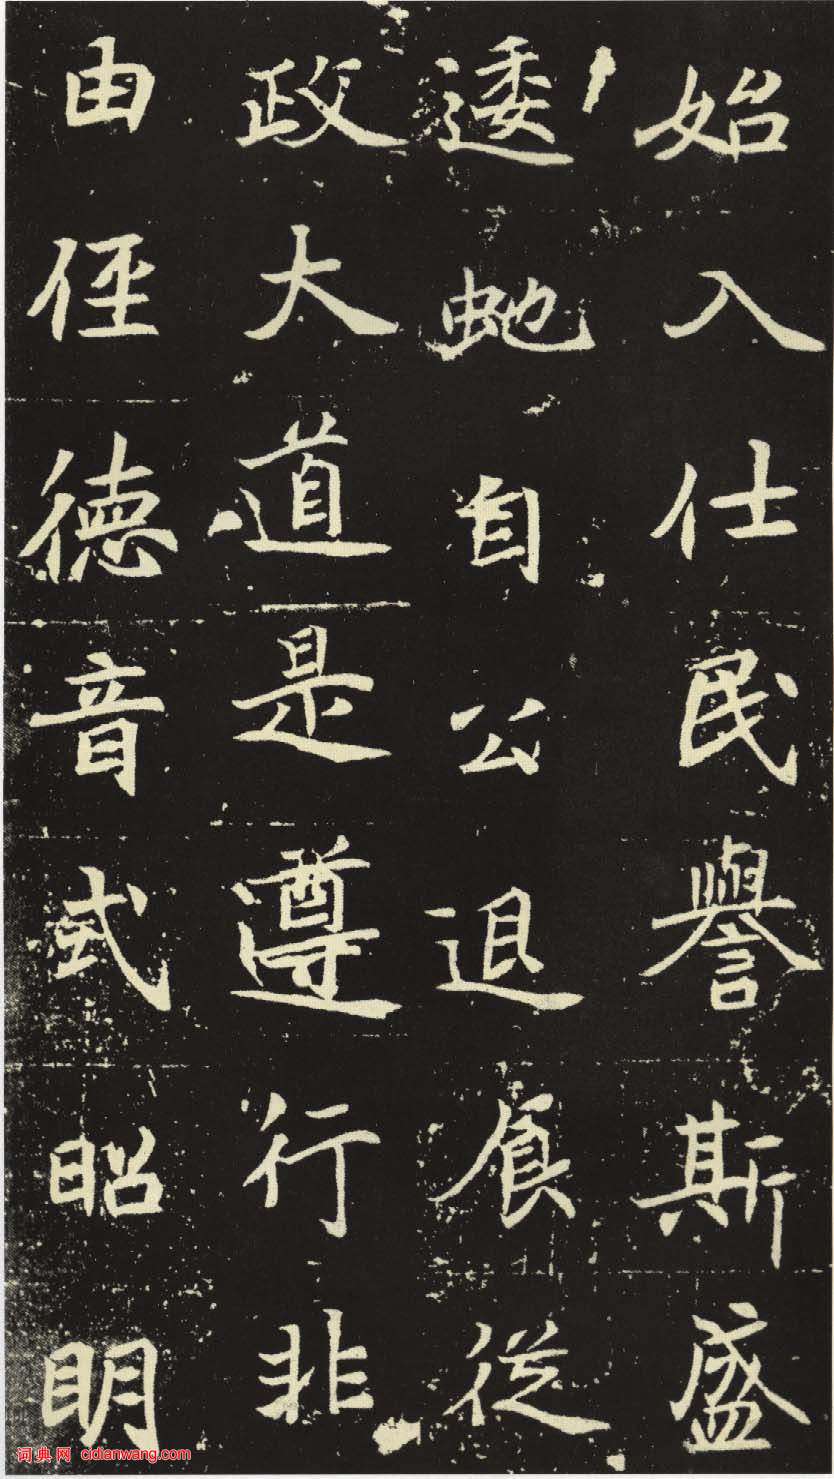 始入仕民譽斯盛
逶虵自公退食從
政大道是遵行非
由徑德音式昭明
词典网 cidianwang.com